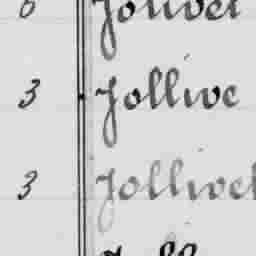 6 Jolivet
3 Jollive
3 Jollivet